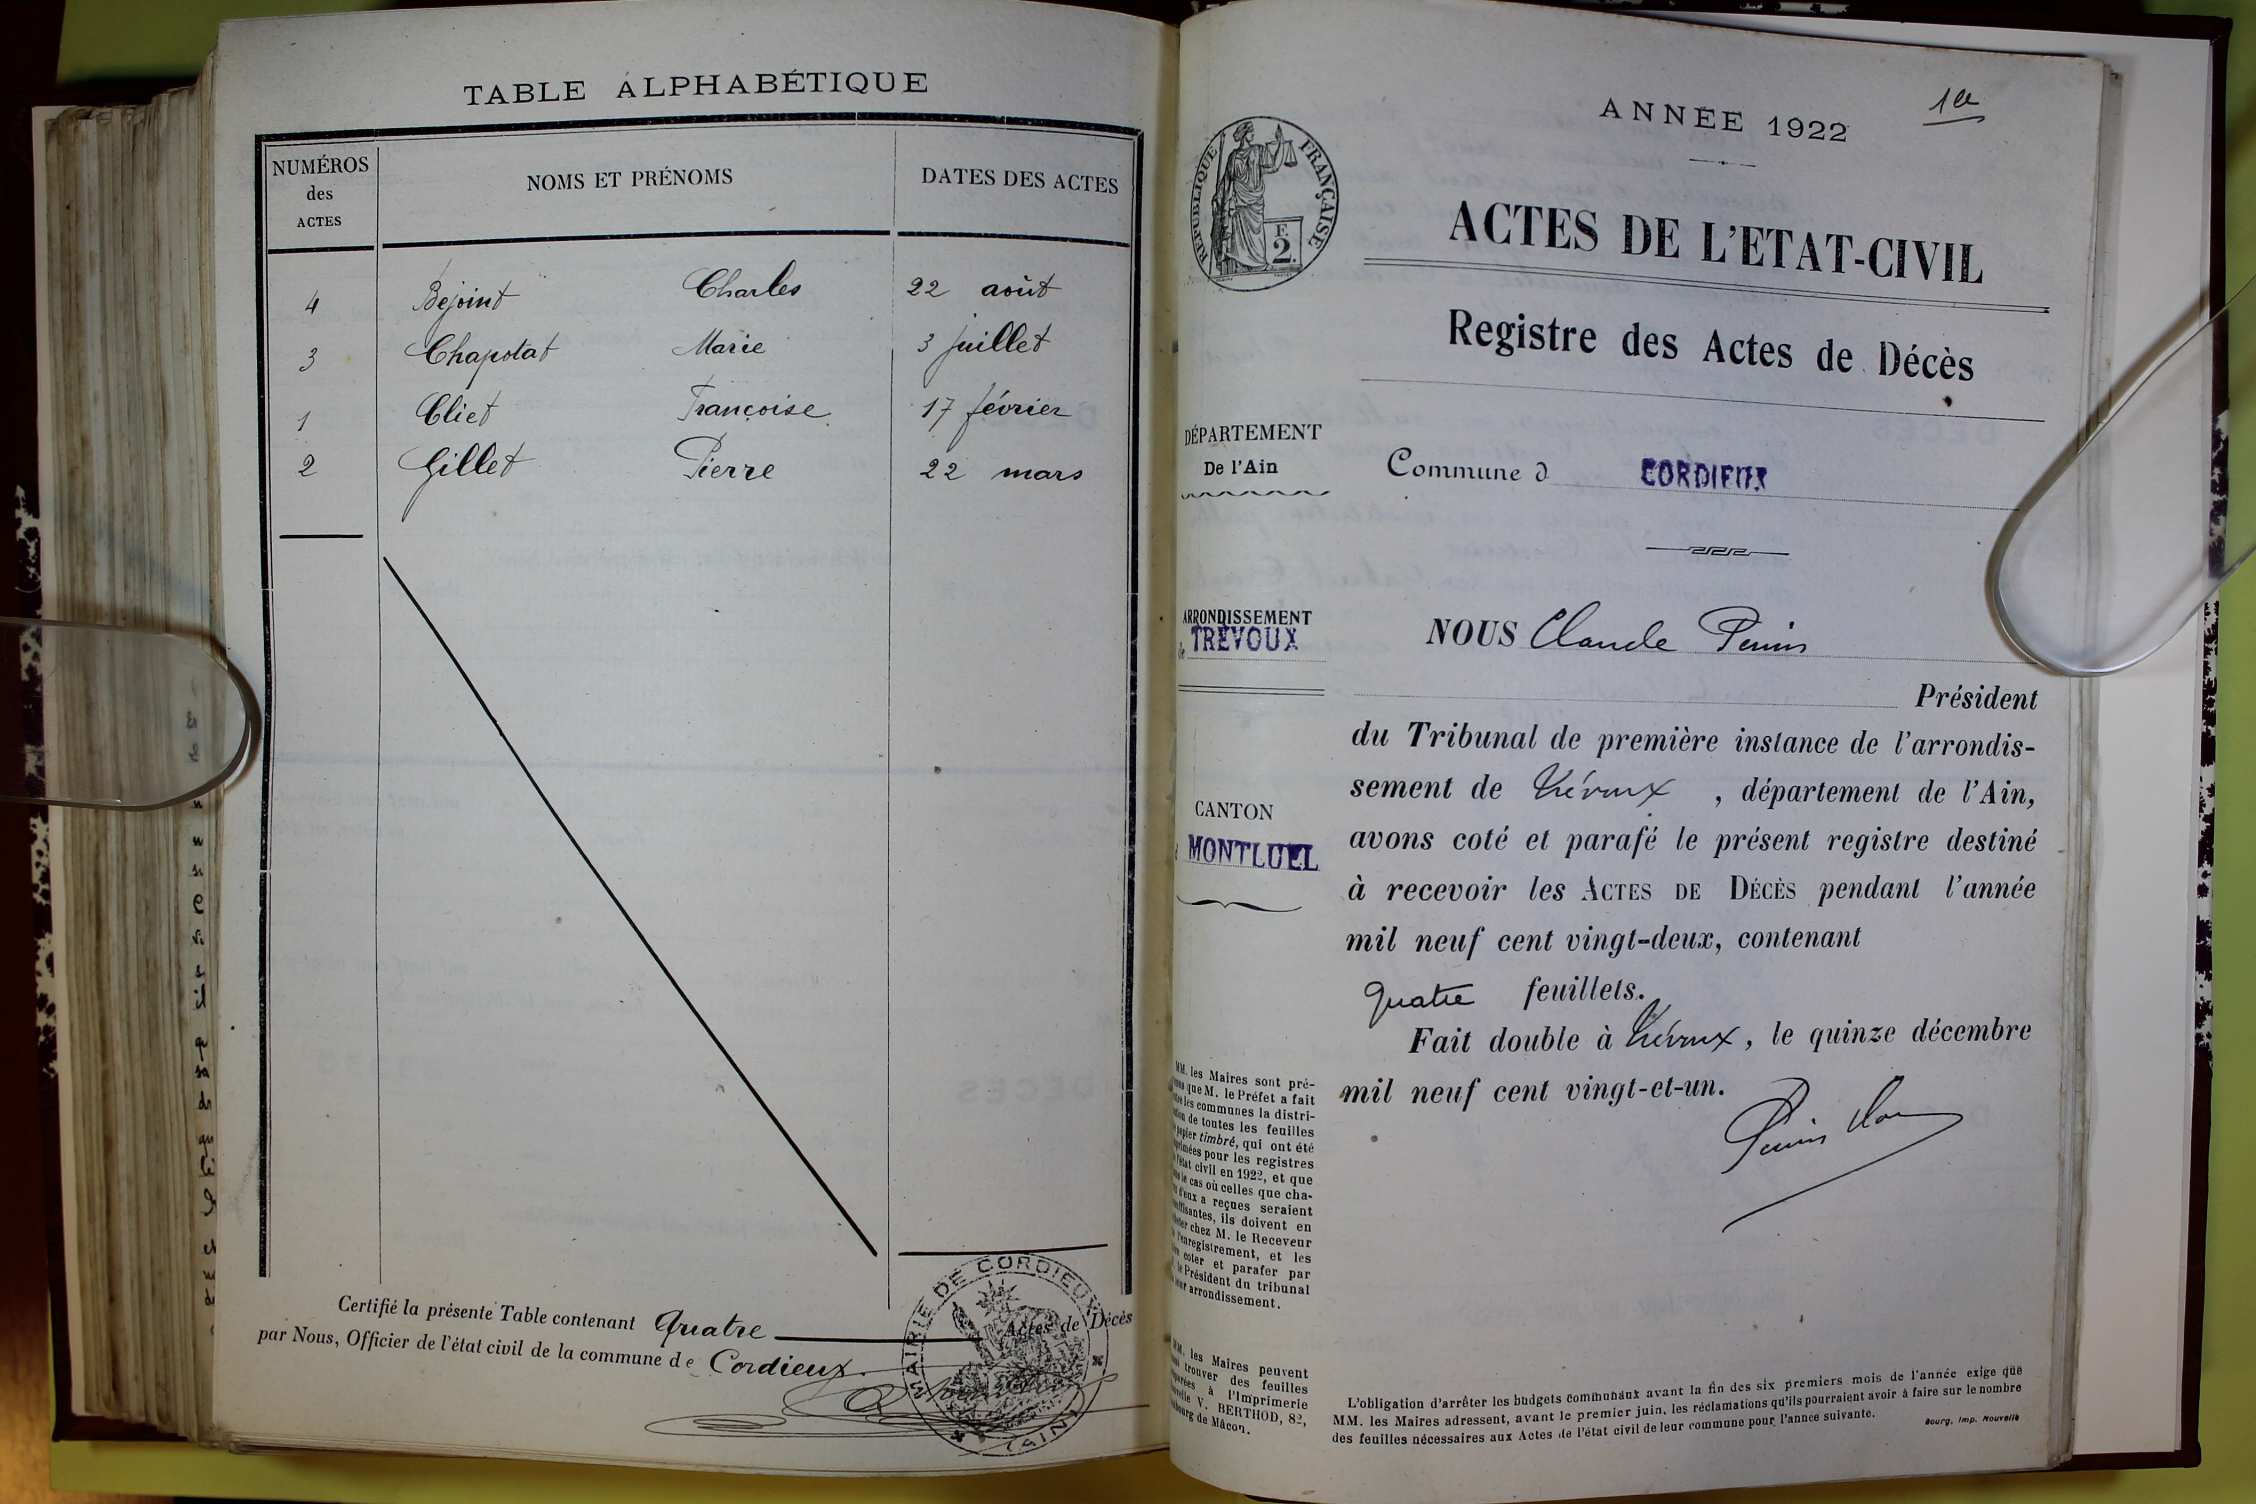 TABLE ALPHABÉTIQUE
NUMÉROS
des
ACTES
NOMS ET PRÉNOMS
DATES DES ACTES
4 Bejoint Charles 22 août
3 Chapotat Marie 3 juillet
1 Cliet Françoise 17 février
2 Gillet Pierre 22 mars
Certifié la présente Table contenant Quatre Actes de Décès
par Nous, Officier de l'état civil de la commune de Cordieux
MAIRIE DE CORDIEUX
(AIN)
ANNÉE 1922
RÉPUBLIQUE FRANÇAISE
F.
2.
ACTES DE L'ETAT-CIVIL
Registre des Actes de Décès
DÉPARTEMENT
De l'Ain
Commune d CORDIEUX
ARRONDISSEMENT
de TRÉVOUX
NOUS Claude
Président
du Tribunal de première instance de l'arrondis-
sement de Trévoux, département de l'Ain,
CANTON
MONTLUEL
avons coté et parafé le présent registre destiné
à recevoir les ACTES DE DÉCÈS pendant l'année
mil neuf cent vingt-deux, contenant
quatre feuillets.
Fait double à Trévoux, le quinze décembre
mil neuf cent vingt-et-un.
MM. les Maires sont pré-
que M. le Préfet a fait
les communes la distri-
de toutes les feuilles
papier timbré, qui ont été
pour les registres
l'état civil en 1922, et que
le cas où celles que cha-
d'eux a reçues seraient
ils doivent en
chez M. le Receveur
l'enregistrement, et les
coter et parafer par
le Président du tribunal
arrondissement.
MM. les Maires peuvent
trouver des feuilles
à l'Imprimerie
V. BERTHOD, 82,
de Mâcon.
L'obligation d'arrêter les budgets communaux avant la fin des six premiers mois de l'année exige que
MM. les Maires adressent, avant le premier juin, les réclamations qu'ils pourraient avoir à faire sur le nombre
des feuilles nécessaires aux Actes de l'état civil de leur commune pour l'année suivante.
Bourg, Imp. Nouvelle